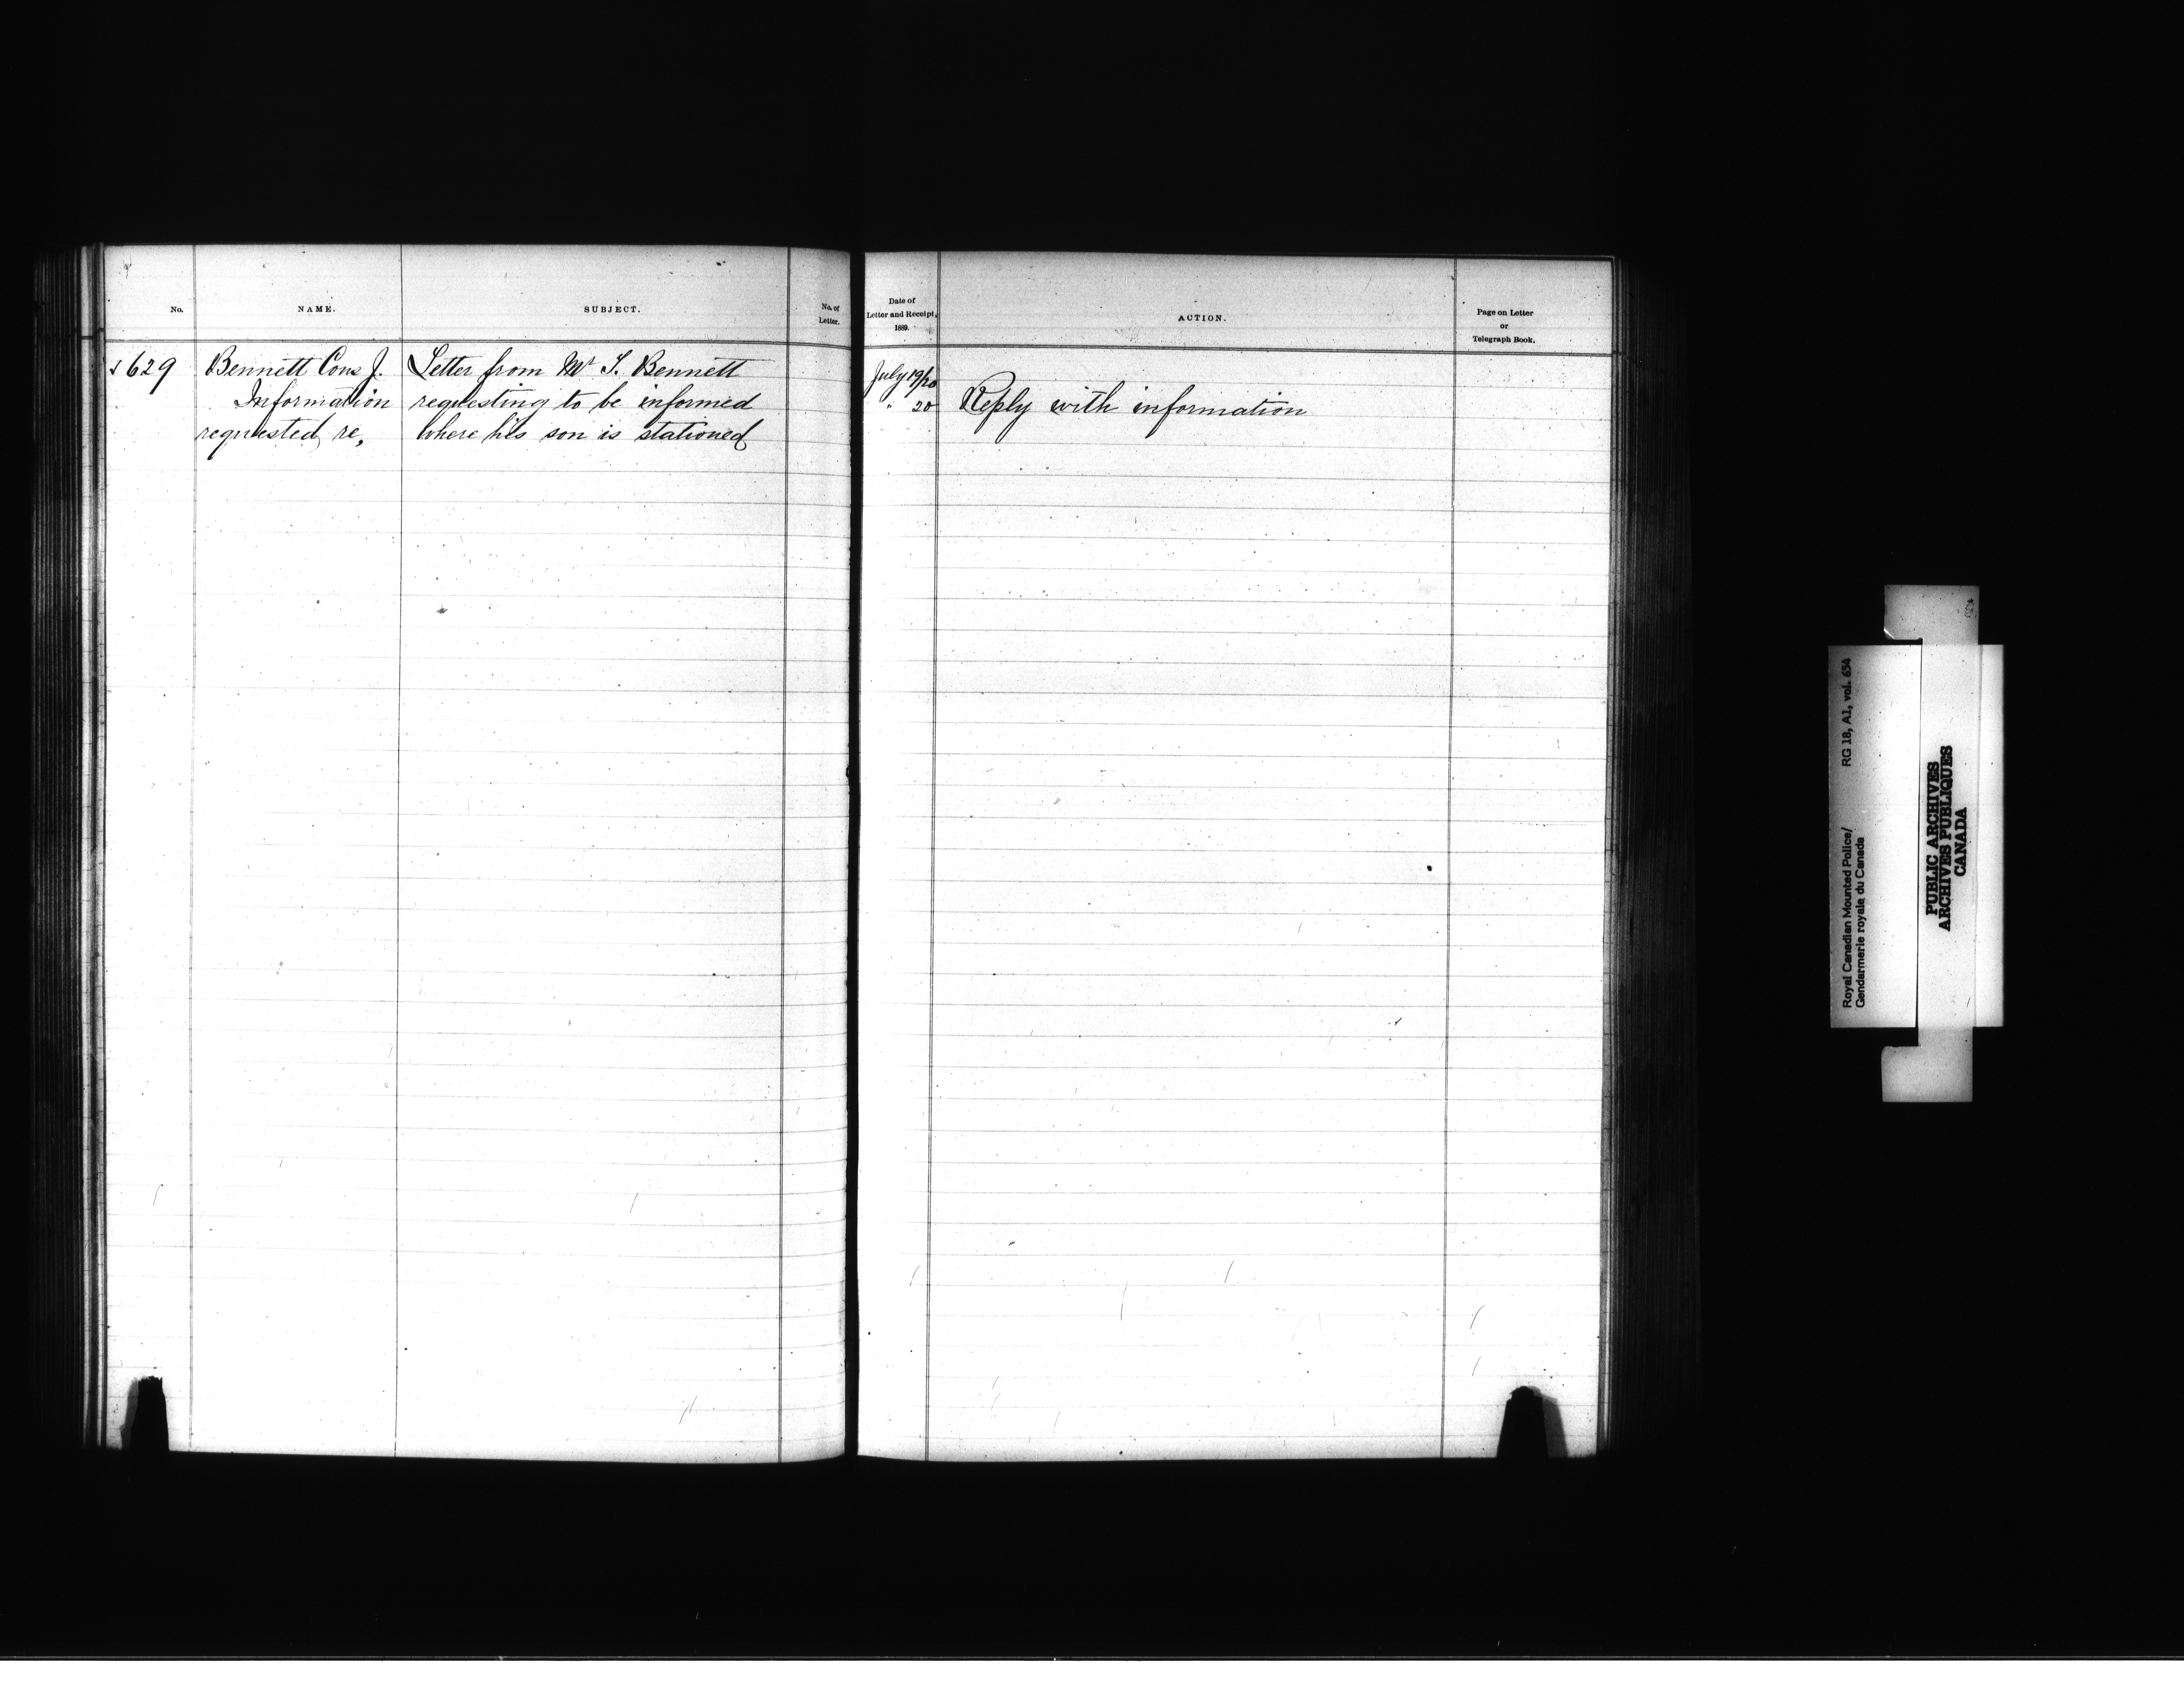 No.
NAME.
SUBJECT.
No. of
Letter.
629
Bennett Cons J.
Information
requested re,
Letter from Mr Bennett
requesting to be informed
where his son is stationed
Date of
Letter and Receipt,
1889.
ACTION.
Page on Letter
or
Telegraph Book.
July 19/20
" 20
Reply with information
Royal Canadian Mounted Police/
Gendarmerie royale du Canada
RG 18, A1, vol. 654
PUBLIC ARCHIVES
ARCHIVES PUBLIQUES
CANADA